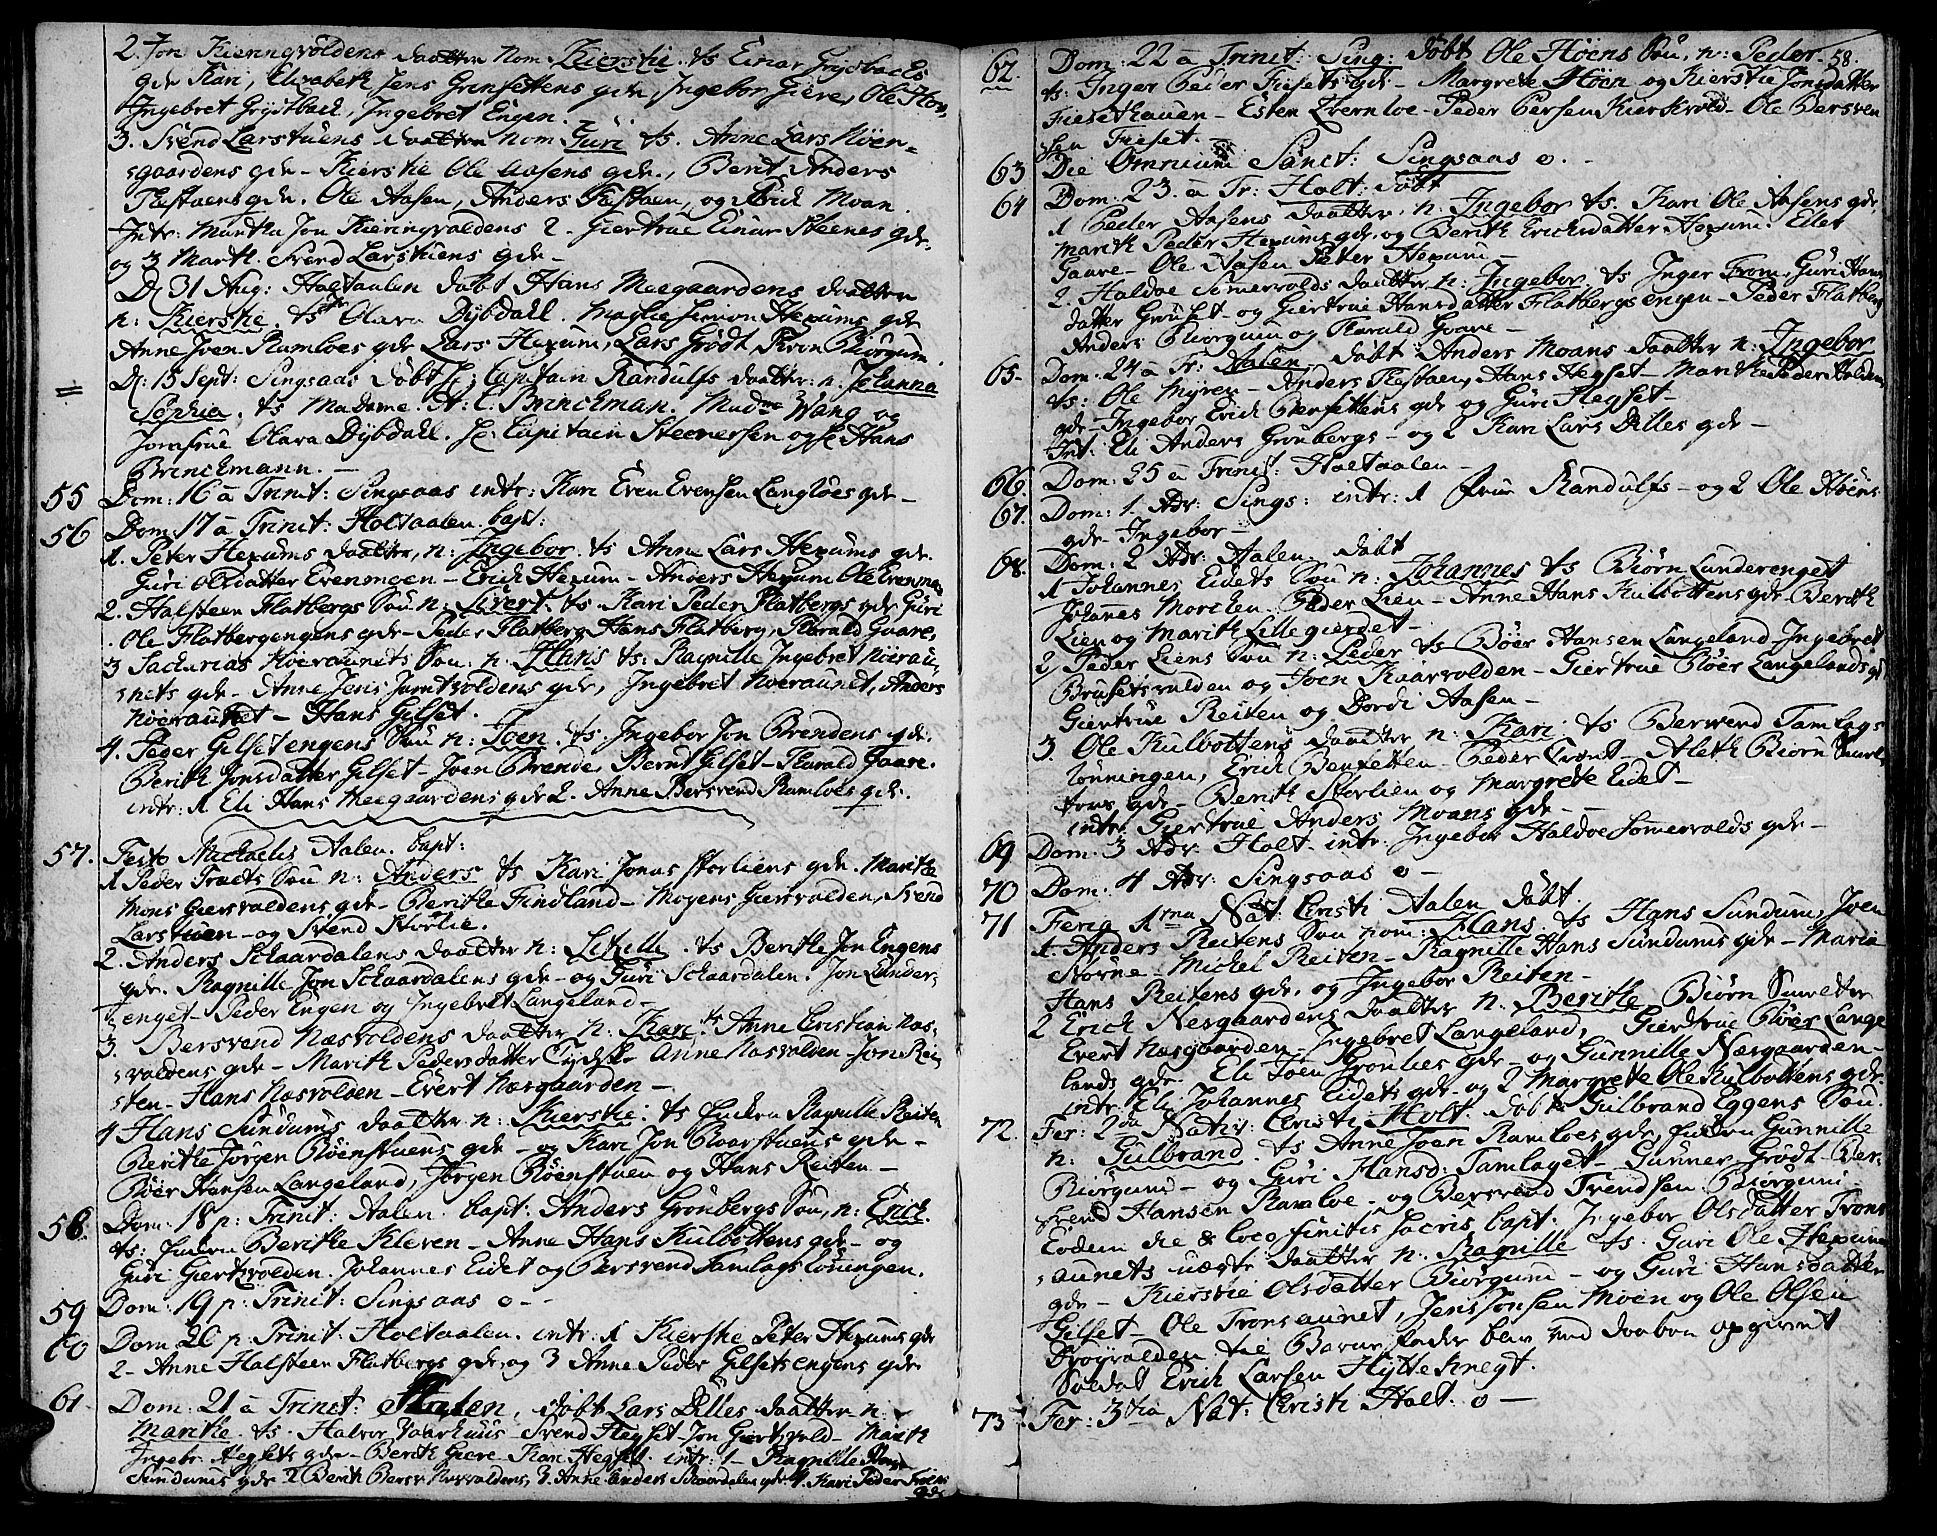 2. Jon Kieringvoldens daatter nom. Kierstie. ts Einar Grydbachs
gde Kari, Elizabeth Jens Grinsettens gde, Ingebor Giere, Ole
Ingebret Grydbach, Ingebret Engen.
3. Svend Larstuens daatter nom Guri ts. Anne Lars Höer-
gaardens gde - Kierstie Ole Aasens gde, Berit Anders
Restaens gde. Ole Aasen, Anders Restaen, og Erich Moan.
Intr: Martha Jon Kieringvoldens 2. Giertrue Einar Steenes gde.
og 3 Marth. Svend Larstuens gde -
D. 31 Aug: Holtaalen döbt Hans Meegaardens daatter
n: Kierstie. ts Olava Dybdall. Hexums gde
Anne Joen Ramloes gde Lars Hexum, Lars Grödt, Biörgum.
D: 15 Sept: Singsaas döbt Hr: Capitain Randulfs daatter: n. Johanna
Sophia. ts Madame A: C: Brinckman. Madme Wang og
Jomfrue Olava Dybdall. Hr: Capitain Steenersen og Hr Hans
Brinckmann. -
55 Dom: 16 à Trinit: Singsaas intr: Kari Even Evensen Langloes gde -
56 Dom 17 à Trinit: Holtaalen. bapt:
1. Peter Hexums daatter, n: Ingebor. ts Anne Lars Hexums gde.
Guri Olsdatter Evenmoen - Erich Hexum - Anders Hexum Ole Evenmoen
2. Halsteen Flatbergs Sön n: Sivert. ts. Kari Peder Flatbergs gde Guri
Ole Flatbergengens gde - Peder Flatberg Hans Flatberg, Harald Gaare,
3 Sacharias Höeraunets Sön: n. Hans ts: Ragnille Ingebret Höerau-
nets gde - Anne Jens Jamtvoldens gde, Ingebret Höeraunet, Anders
Höeraunet - Hans Gilset.
4. Peder Gilsetengens Sön n: Joen. ts. Ingebor Jon Brendens gde.
Berith Jonsdatter Gilset - Joen Brende, Bernt Gilset - Harald Gaare.
intr: 1 Eli Hans Meegaardens gde 2. Anne Bersvend Ramloes gde.
57. Festo Michaelis Aalen. bapt:
1 Peder Troets Sön n: Anders ts Kari Jonas Storliens gde. Marithe
Mons Giersvoldens gde - Berithe Findland - Mogens Giersvolden, Svend
Larstuen - og Svend Storlie.
2. Anders Schaardalens daatter n: Sitzille. ts Berithe Jon Engens
gde. Ragnille Jon Schaardalens gde - og Guri Schaardalen. Jon Lunder-
enget - Peder Engen og Ingebret Langeland -
3. Bersvend Nesvoldens daatter n: Kari ts Anne Cristian Nes-
voldens gde - Marith Pedersdatter Anne Nesvolden - Jon Rei-
ten - Hans Nesvolden - Evert Nesgaarden -
4 Hans Sundums daatter n: Kierstie. ts Enken Ragnille Reiten
Berithe Jörgen Böenstuens gde - og Kari Jon Roarstuens gde -
Böer Hansen Langeland, Jörgen Böenstuen og Hans Reiten -
58. Dom: 18 p: Trinit: Aalen. bapt: Anders Grönbergs Sön, n: Erich.
ts: Enken Berithe Kleven - Anne Hans Kulbottens gde - og
Guri Giertsvolden. Johannes Eidet og Bersvend Tamlagslöningen.
59 Dom: 19 p: Trinit: Singsaas o -
60 Dom. 20 p: Trinit: Holtaalen. intr: 1 Kierstie Peter Hexums gde
2 - Anne Halsteen Flatbergs gde, og 3 Anne Peder Gilsetsengens gde
61. Dom: 21 à Trinit: Aalen, döbt Lars Dilles daatter n:
Marithe. ts. Halvor Vaarhuus - Svend Hegset - Jon Giertsvold - Marith
Ingebr. Hegsets gde - Berith Giere - Kari Hegset. intr: 1 - Ragnille Hans
Sundums gde 2 Berith Bersv: Nesvoldens, 3. Anne Anders Schaardalens gde 4. Kari Peder Troets
gde.
58.
62. Dom: 22 à Trinit: Sing: döbt Ole Höens Sön, n: Peder.
ts: Inger Peder Fiesets gde - Margrete Höen og Kierstie Jonsdatter
Fiesethauen - Esten Peder Persen Kirkvold - Ole Bersven
sen Fieset.
63 Die Omnium Sanct: Singsaas o. -
64 Dom: 23. à Tr: Holt: döbt
1 Peder Aasens daatter, n: Ingebor ts. Kari Ole Aasens gde,
Marith Peder Hexums gde, og Berith Erichsdatter Hexum. Elev
Gaare - Ole Aasen Peter Hexum -
2. Haldoe Somervolds daatter, n: Ingebor ts Inger From, Guri Hans
datter Gruset - og Giertrue Hansdatter Flatbergsengen - Peder Flatberg
Anders Biörgum og Harald Gaare -
65 - Dom: 24 à Tr: Aalen döbt Anders Moans daatter n: Ingebor
ts: Ole Myren - Anders Restaen, Hans Hegset - Marithe Peder
gde - Ingebor Erich Bersettens gde og Guri Hegset -
Int: Eli Anders Grönbergs - og 2 Kari Lars Dilles gde -
66. Dom: 25 à Trinit: Holtaalen -
67. Dom: 1. Adv: Sings: intr: 1 frue Randulfs - og 2 Ole Höens
gde - Ingebor -
68. Dom: 2 Adv: Aalen. döbt
1 Johannes Eidets Sön n: Johannes ts Biörn Lunderenget
Johannes Morchen. Peder Lien - Anne Hans Kulbottens gde - Berith
Lien og Marith Lillegierdet -
2 Peder Liens Sön n: Peder ts Böer Hansen Langeland Ingebret
Brusetsvolden og Joen Kaarvolden - Giertrue Böer Langelands gde
Giertrue Reiten og Dordi Aasen -
3. Ole Kulbottens daatter n: Kari ts Bersvend Tamlags-
löningen, Erich Bersetten - Peder Troet - Aleth Biörn
gde - Berith Storlien og Margrete Eidet -
intr: Giertrue Anders Moans gde -
69 Dom: 3 Adv: Holt. intr: Ingebor Haldoe Somervolds gde -
70 Dom: 4 Adv: Singsaas o -
71 Feria 1ma Nat: Cristi Aalen döbt.
1. Anders Reitens Sön nom: Hans ts Hans Sundum, Joen
Störne - Michel Reiten - Ragnille Hans Sundums gde - Maria
Hans Reitens gde. og Ingebor Reiten -
2 Erich Nesgaardens daatter n. Berithe Biörn
Evert Nesgaarden - Ingebret Langeland, Giertrue Böer Lange
lands gde Eli Joen Grönlies gde - og Gunnille Nesgaarden -
intr: Eli Johannes Eidets gde - og 2 Margrete Ole Kulbottens gde.
72. Fer: 2da Nativ: Cristi Holt. döbt Gulbrand Eggens Sön.
n: Gulbrand. ts Anne Joen Ramloes gde, Enken Gunnille
Biörgum - og Guri Hansd: Tamlaget - Gunner Grödt. Ber-
svend Hansen Ramloe - og Bersvend Trendsen Biörgum -
Eodem die & loco finitis sacris bapt: Ingebor Olsdatter Trons
aunets uægte daatter n. Ragnille ts. Guri Ole Hexum
gde - Kierstie Olsdatter Biörgum - og Guri Hansdatter
Gilset - Ole Tronsaunet, Jens Jonsen Moen og Ole Olsen
Dröyvolden til Barnefader blev ved daaben opgivet
Soldat Erich Larsen Hyttekregt.
73 Fer: 3tia Nat: Cristi Holt. o -